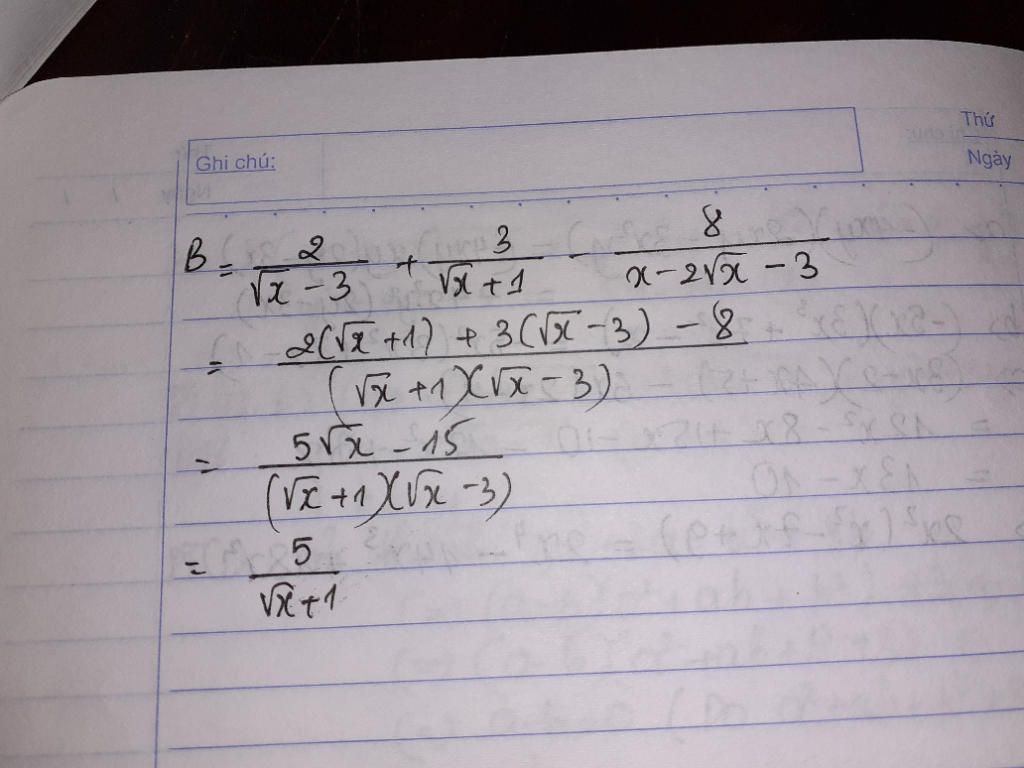 Thứ
Ghi chú:
Ngày
B = 2/(√x − 3) + 3/(√x + 1) − 8/(x − 2√x − 3)
= (2(√x + 1) + 3(√x − 3) − 8)/((√x + 1)(√x − 3))
= (5√x − 15)/((√x + 1)(√x − 3))
= 5/(√x + 1)